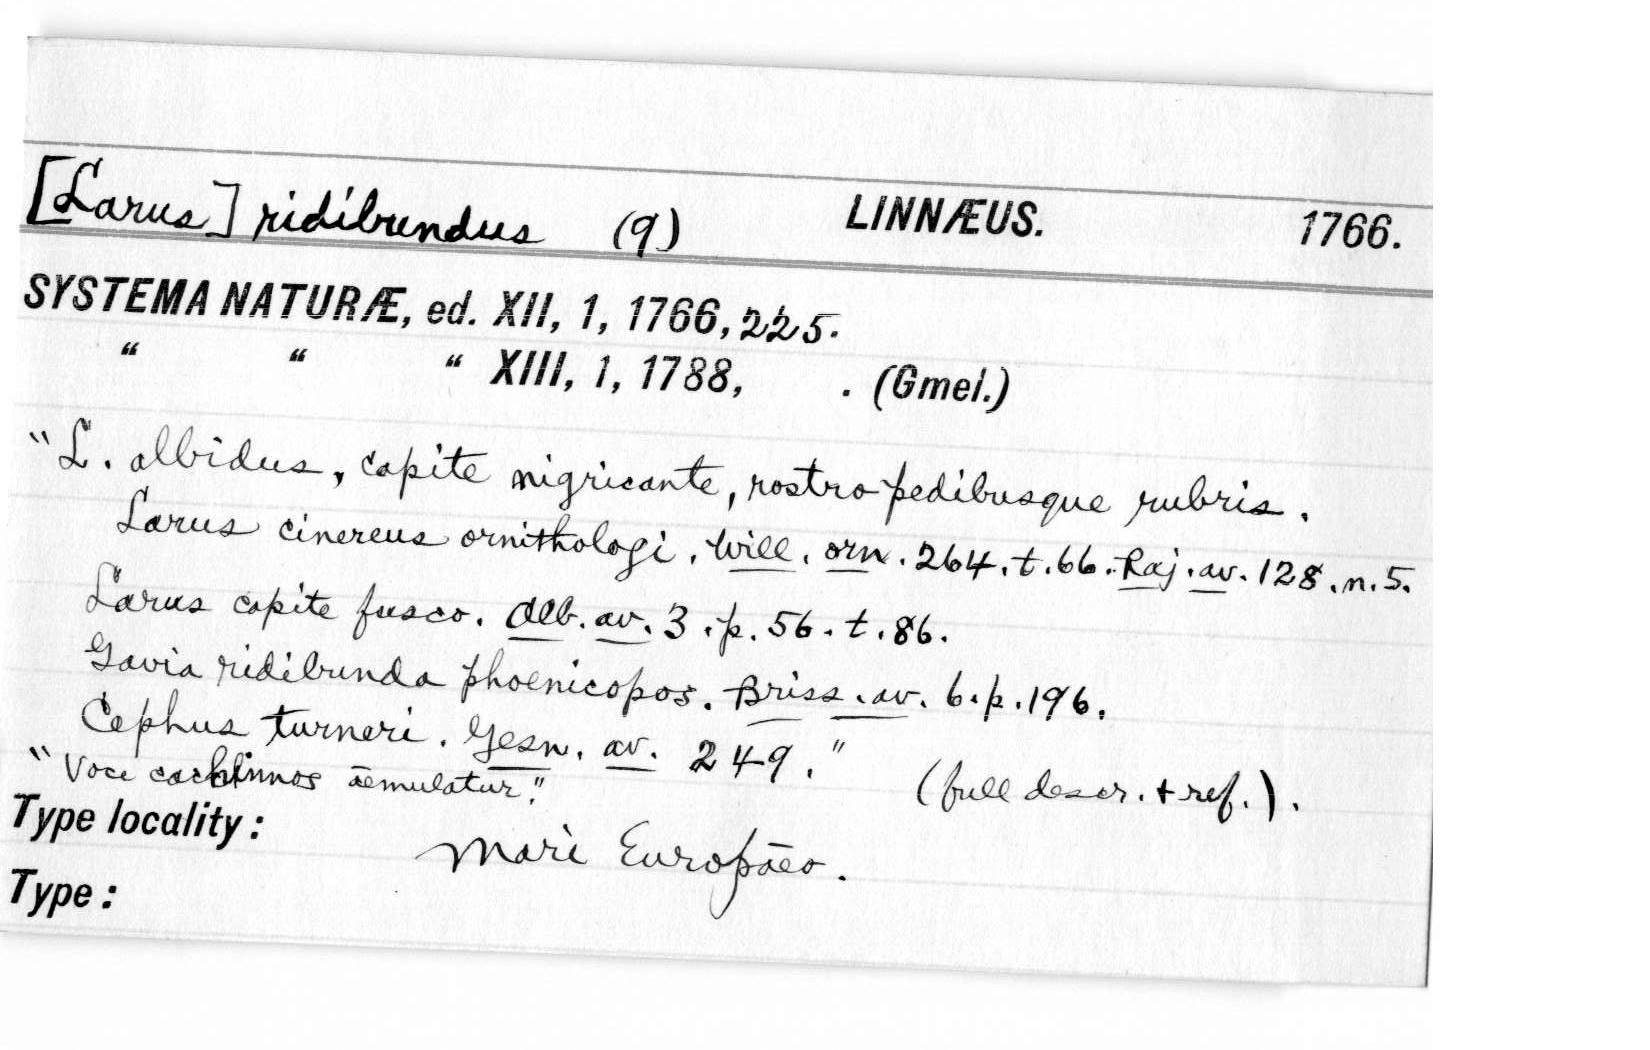 [Larus] ridibundus (9) LINNÆUS. 1766.
SYSTEMA NATURÆ, ed. XII, 1, 1766, 225.
“ “ “ XIII, 1, 1788, . (Gmel.)
"L. albidus, capite nigricante, rostro pedibusque rubris.
Larus cinereus ornithologi. Will. orn. 264. t. 66. Raj. av. 128. n. 5.
Larus capite fusco. Alb. av. 3. p. 56. t. 86.
Gavia ridibunda phoenicopos. Briss. av. 6. p. 196.
Cephus turneri. Gesn. av. 249."
"Voce cachinnos aemulatur." (full descr. + ref.).
Type locality: Mari Europaeo.
Type: